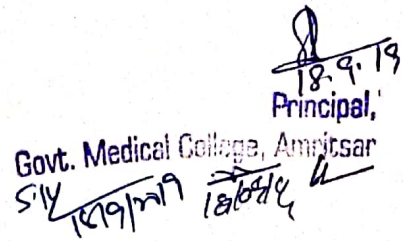 18.9.19
Principal,
Govt. Medical College, Amritsar
18/9/2019